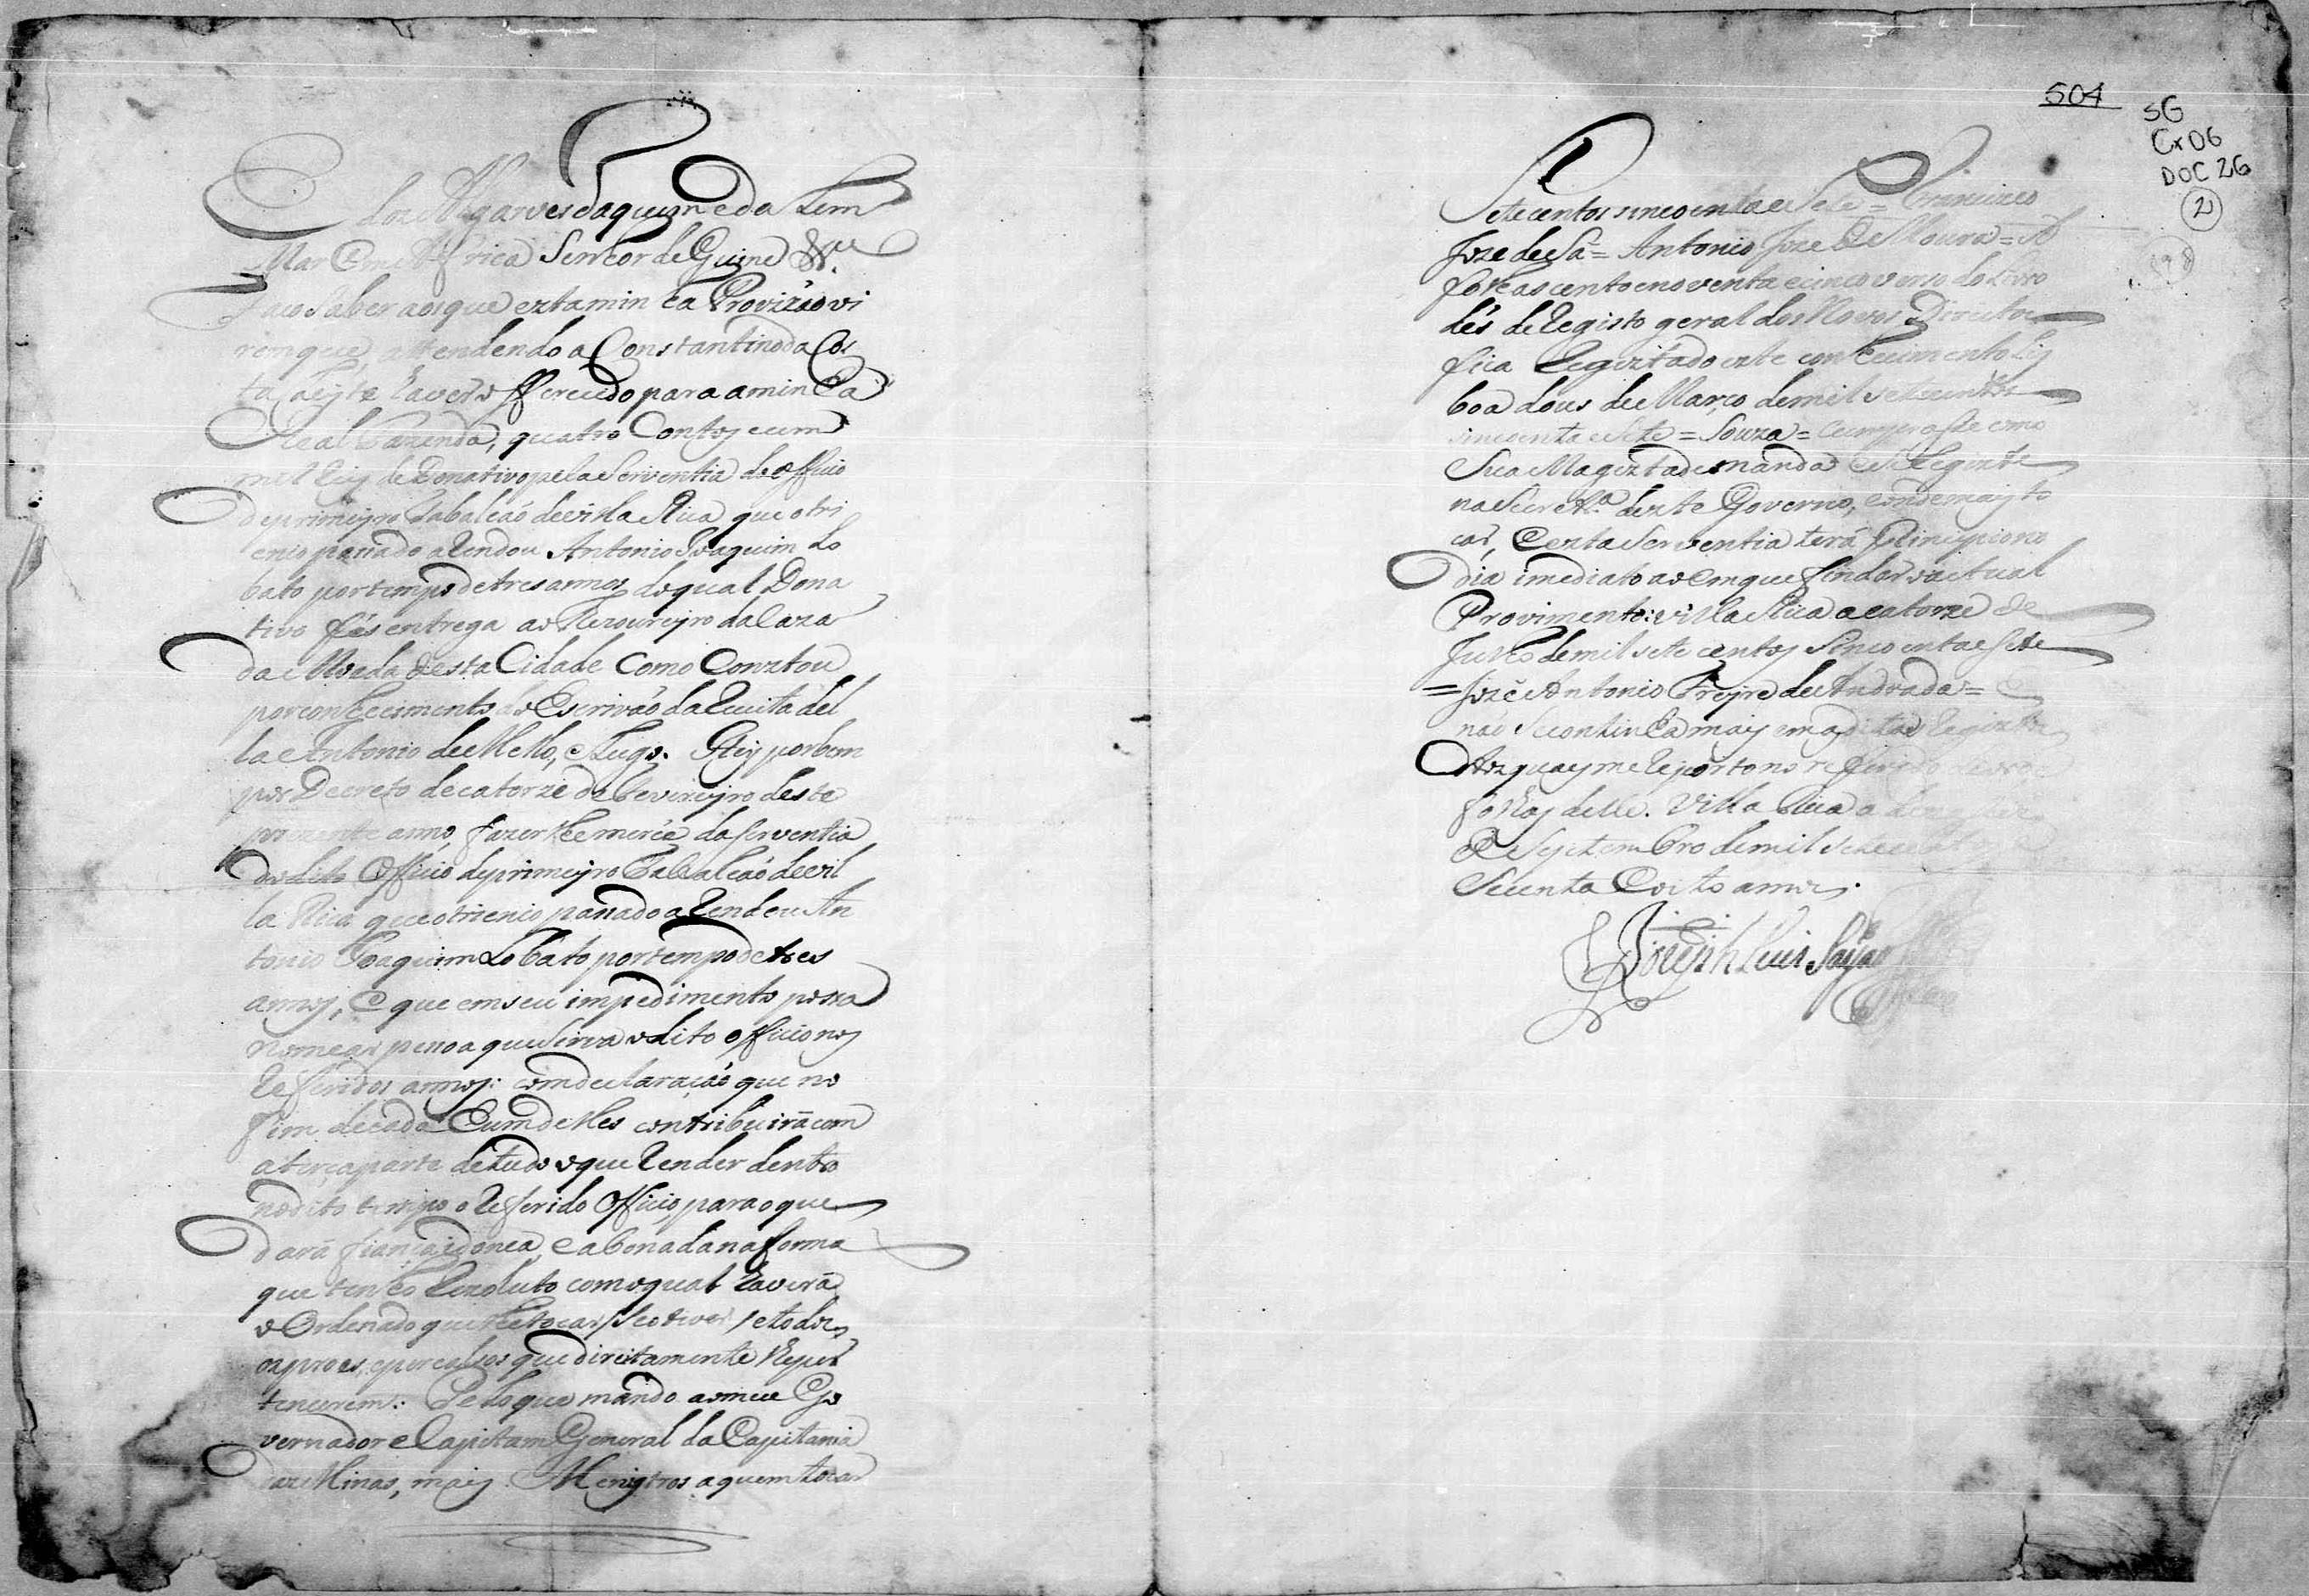 dos Algarves daquem e da lem
Mar Em Affrica Senhor de Guiné &.ª
Faço saber aos que esta minha Provizão vi
rem que, attendendo a Constantino da Cos
ta Leyte haver offerecido para a minha
Real Fazenda, quatro Contos e cem
mil reis de Donativo pela serventia do officio
de primeyro Tabaleaõ de villa Rica que o tri
enio passado a Rendou Antonio Joaquim Lo
bato por tempo de tres annos do qual Dona
tivo fés entrega ao Thezoureyro da Caza
da Moeda desta Cidade como Constou
por conhecimento do Escrivaõ da Receita del
la Antonio de Mello, e Lugo. Hey por bem
por Decreto de catorze de Fevereyro deste
prezente anno, fazer lhe mercê da serventia
do dito Officio de primeyro Tabaleaõ de vil
la Rica que o trienio passado a Rendou An
tonio Joaquim Lobato por tempo de tres
annos, e que em seu impedimento possa
nomear pessoa que sirva o dito officio nos
Referidos annos: com declaraçaõ que no
fim de cada hum delles contribuirá com
a terça parte de tudo o que Render dentro
no dito tempo o Referido Officio, para o que
dará fiança idonea, e abonada na forma
que tenho Rezoluto com o qual haverá
o Ordenado que lhe tocar / se o tiver / e todos
os proes, e percalsos que direitamente lhe per
tencerem: Pelo que mando ao meu Go
vernador e Capitam General da Capitania
das Minas, mais Menistros a quem tocar
504
SG
Cx 06
DOC 26
2
Sete centos sincoenta e Sete = Francisco
Joze de Sá = Antonio Joze de Moura = A
folhas cento e noventa e cinco verso do Livro
dés de Registo geral dos Novos Direitos
fica Regiztado este conhecimento Lis
boa dous de Março de mil setecentos
sincoenta e Sete = Souza = Cumprasse como
Sua Magestade manda e se Registe
na Secretr.ª dezte Governo, e onde mais to
car, E esta Serventia terá Principio no
dia imediato ao em que findar o actual
Provimento: Villa Rica a catorze de
Julho de mil sete centos Sincoenta e sete
= Jozê Antonio Freyre de Andrada =
naõ se continha mais em a dita Registro
Aos quaes me Reporto no referido
folhas delle. Villa Rica a
de Septembro de mil setecentos
Secenta e oito annos.
Joseph Luis Sayaõ